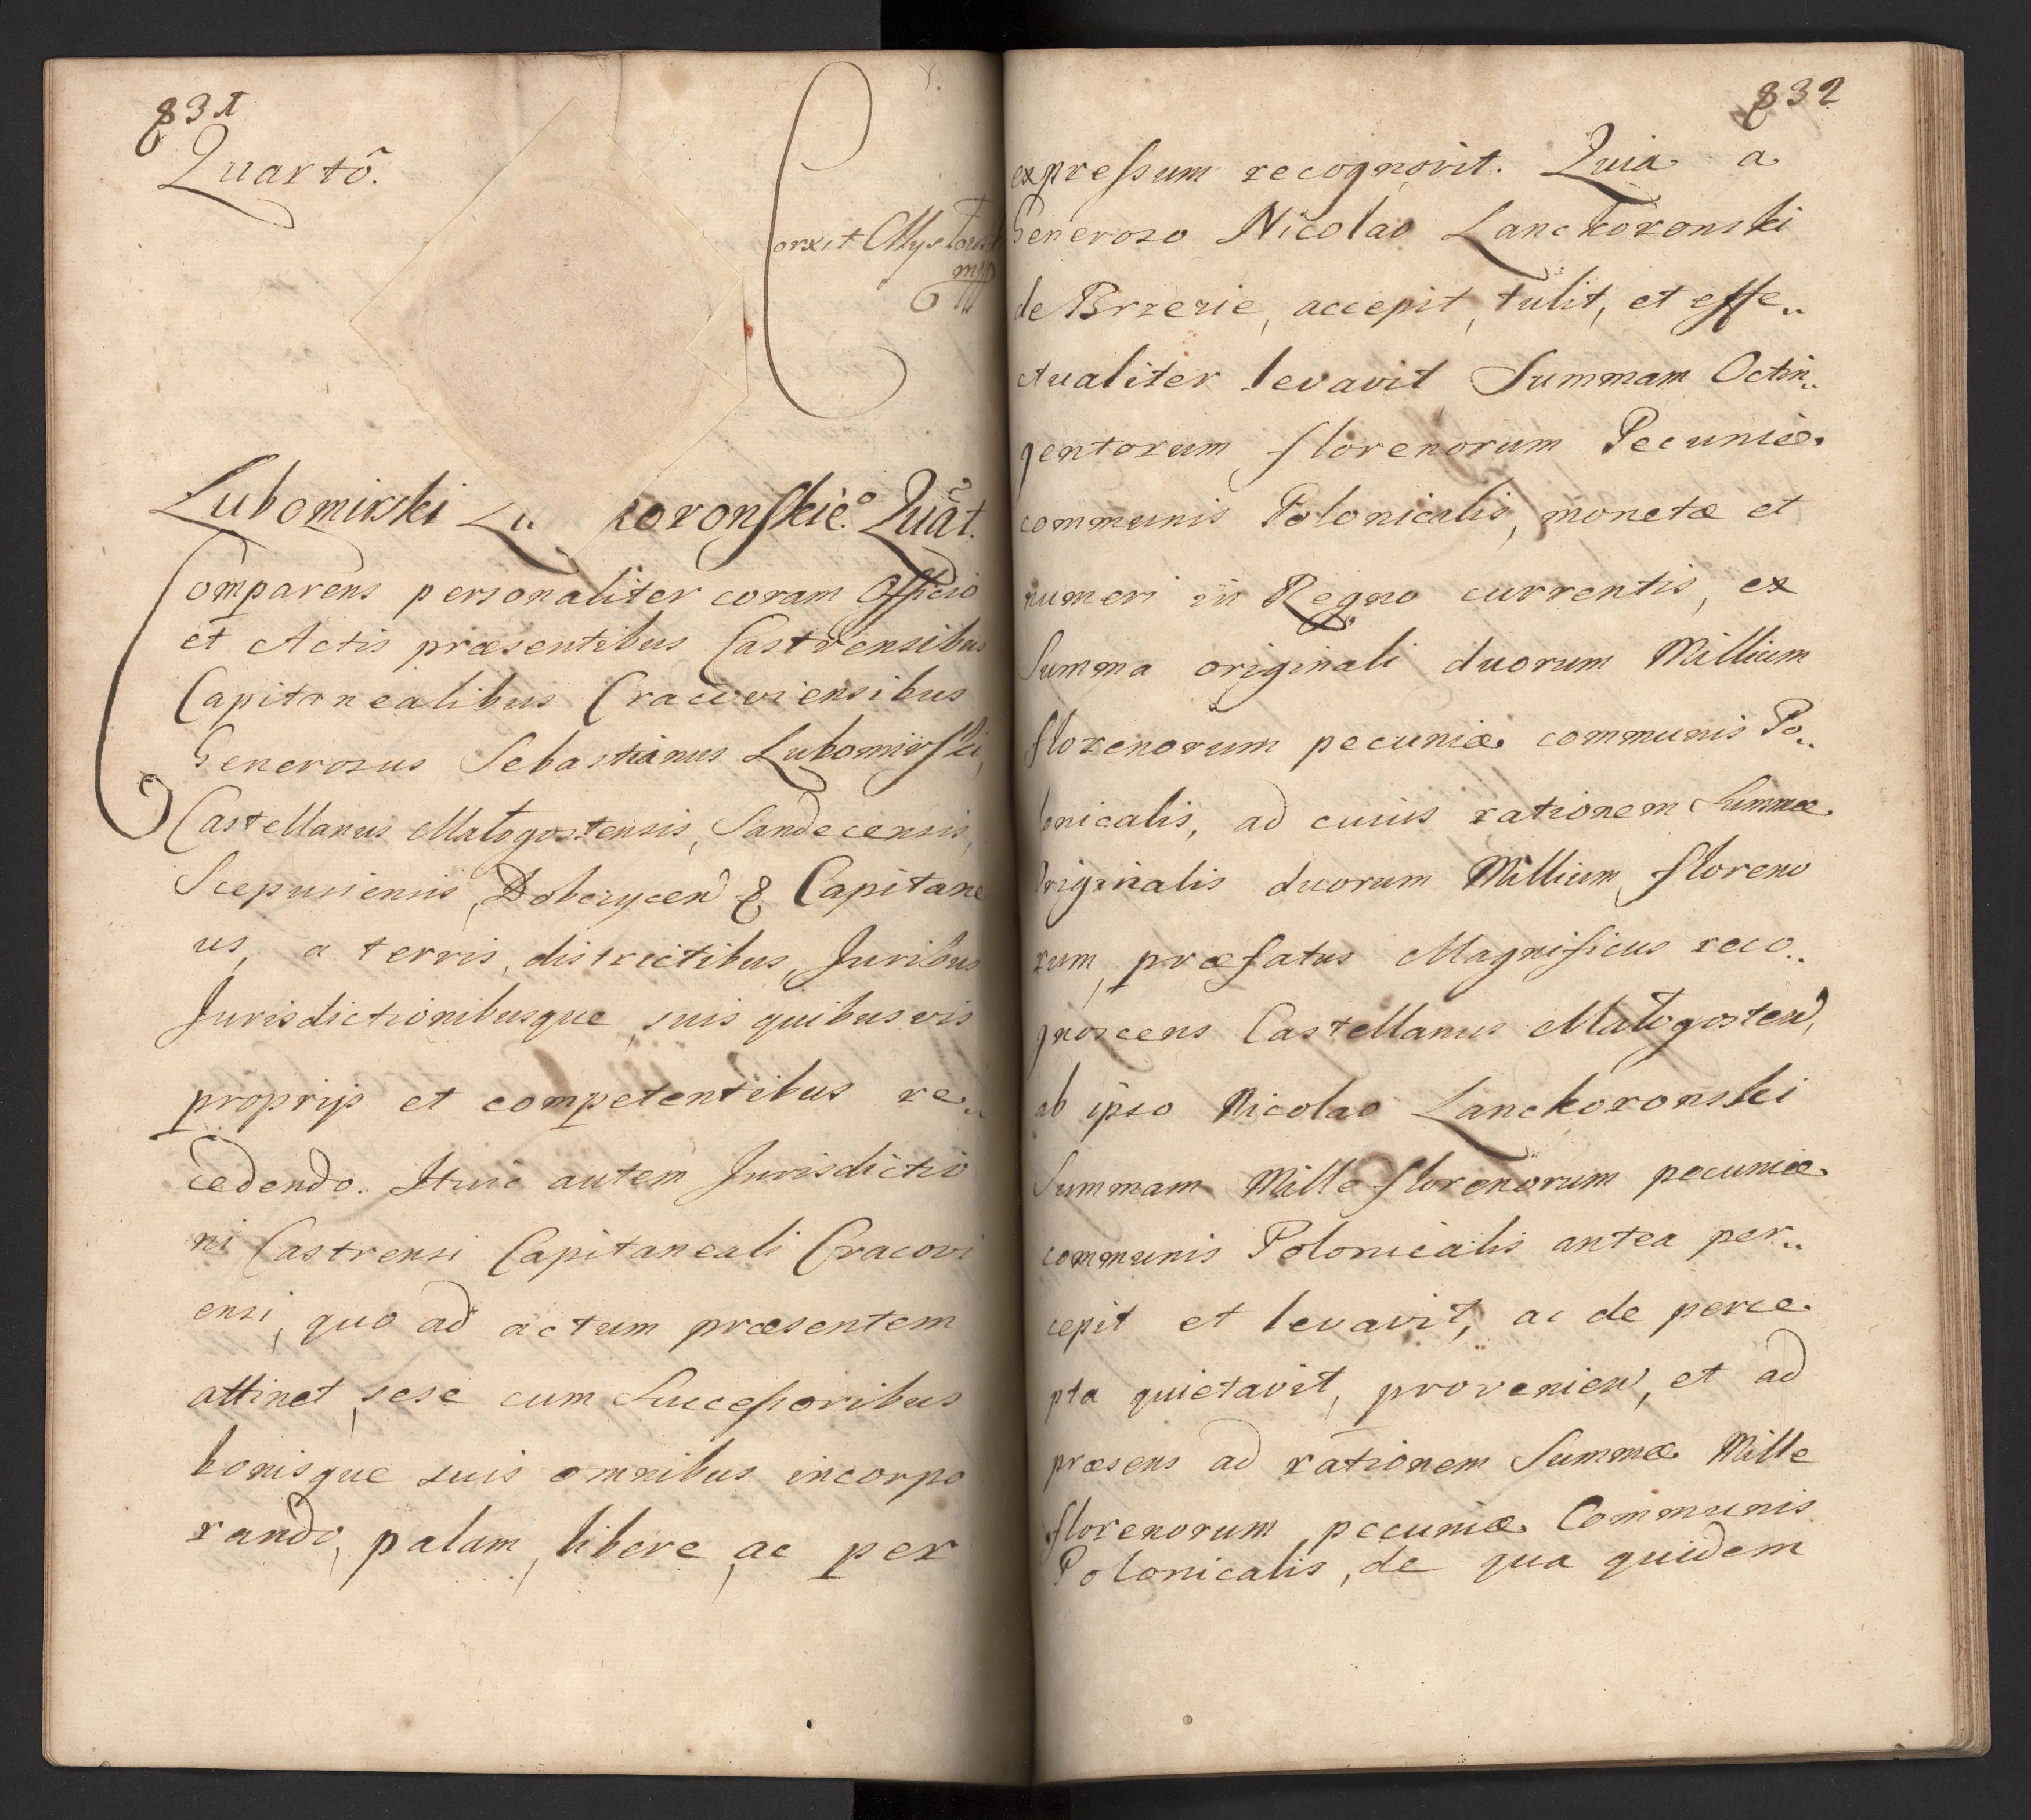 831
Quartô.
Correxit
mpp
Lubomirski La coronskiē.º Quāt.
Comparens personaliter coram Officio
et Actis præsentibus Castrensibus
Capitanealibus Cracoviensibus
Generosus Sebastianus Lubomirski,
Castellanus Małogostensis, Sandecensis,
Scepusiensis, Dobczycen & Capitane
us, a terris, districtibus, Juribus
Jurisdictionibusque, suis quibusvis
proprijs et competentibus re..
cedendo. Huic autem Jurisdictio
ni Castrensi Capitaneali Cracovi
ensi, quo ad actum præsentem
attinet, sese cum Successoribus
bonisque suis omnibus incorpo
rando, palam, libere, ac per
832
expressum recognovit. Quia a
Generoso Nicolao Lanckoronski
de Brzezie, accepit, tulit, et effe..
ctualiter levavit Summam Octin..
gentorum florenorum Pecuniæ
communis Polonicalis, monetæ et
numeri in Regno currentis, ex
Summa originali duorum Millium
florenorum pecuniæ communis Po..
lonicalis, ad cuius rationem Summæ
Originalis duorum Millium floreno
rum, præfatus Magnificus reco..
gnoscens Castellanus Małogosten,
ab ipso Nicolao Lanckoronski
Summam Mille florenorum pecuniæ
communis Polonicalis antea per..
cepit et levavit, ac de perce
pta quietavit, provenien, et ad
præsens ad rationem Summæ Mille
florenorum, pecuniæ Communis
Polonicalis, de qua quidem